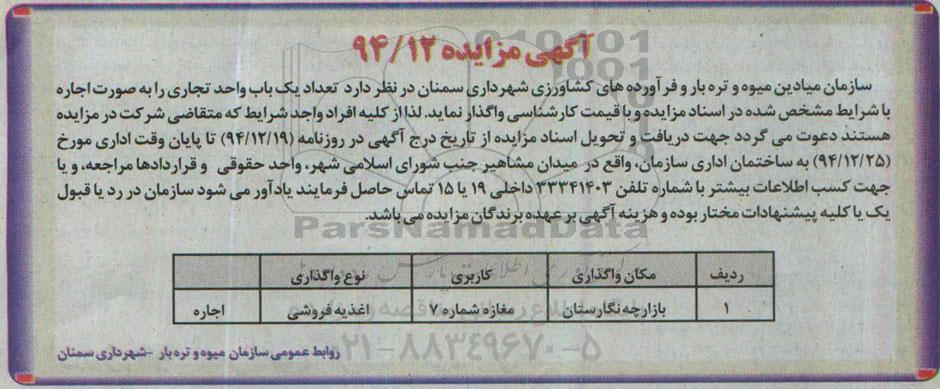 آگهی مزایده ۹۴/۱۲
سازمان میادین میوه و تره بار و فرآورده های کشاورزی شهرداری سمنان در نظر دارد تعداد یک باب واحد تجاری را به صورت اجاره
با شرایط مشخص شده در اسناد مزایده و با قیمت کارشناسی واگذار نماید. لذا از کلیه افراد واجد شرایط که متقاضی شرکت در مزایده
هستند دعوت می گردد جهت دریافت و تحویل اسناد مزایده از تاریخ درج آگهی در روزنامه (۹۴/۱۲/۱۹) تا پایان وقت اداری مورخ
(۹۴/۱۲/۲۵) به ساختمان اداری سازمان، واقع در میدان مشاهیر جنب شورای اسلامی شهر، واحد حقوقی و قراردادها مراجعه، و یا
جهت کسب اطلاعات بیشتر با شماره تلفن ۳۳۳۴۱۴۰۳ داخلی ۱۹ یا ۱۵ تماس حاصل فرمایند یادآور می شود سازمان در رد یا قبول
یک یا کلیه پیشنهادات مختار بوده و هزینه آگهی بر عهده برندگان مزایده می باشد.
ParsNamadData
ردیف مکان واگذاری کاربری نوع واگذاری
۱ بازارچه نگارستان مغازه شماره ۷ اغذیه فروشی اجاره
۰۲۱-۸۸۳۴۹۶۷۰-۵
روابط عمومی سازمان میوه و تره بار -شهرداری سمنان